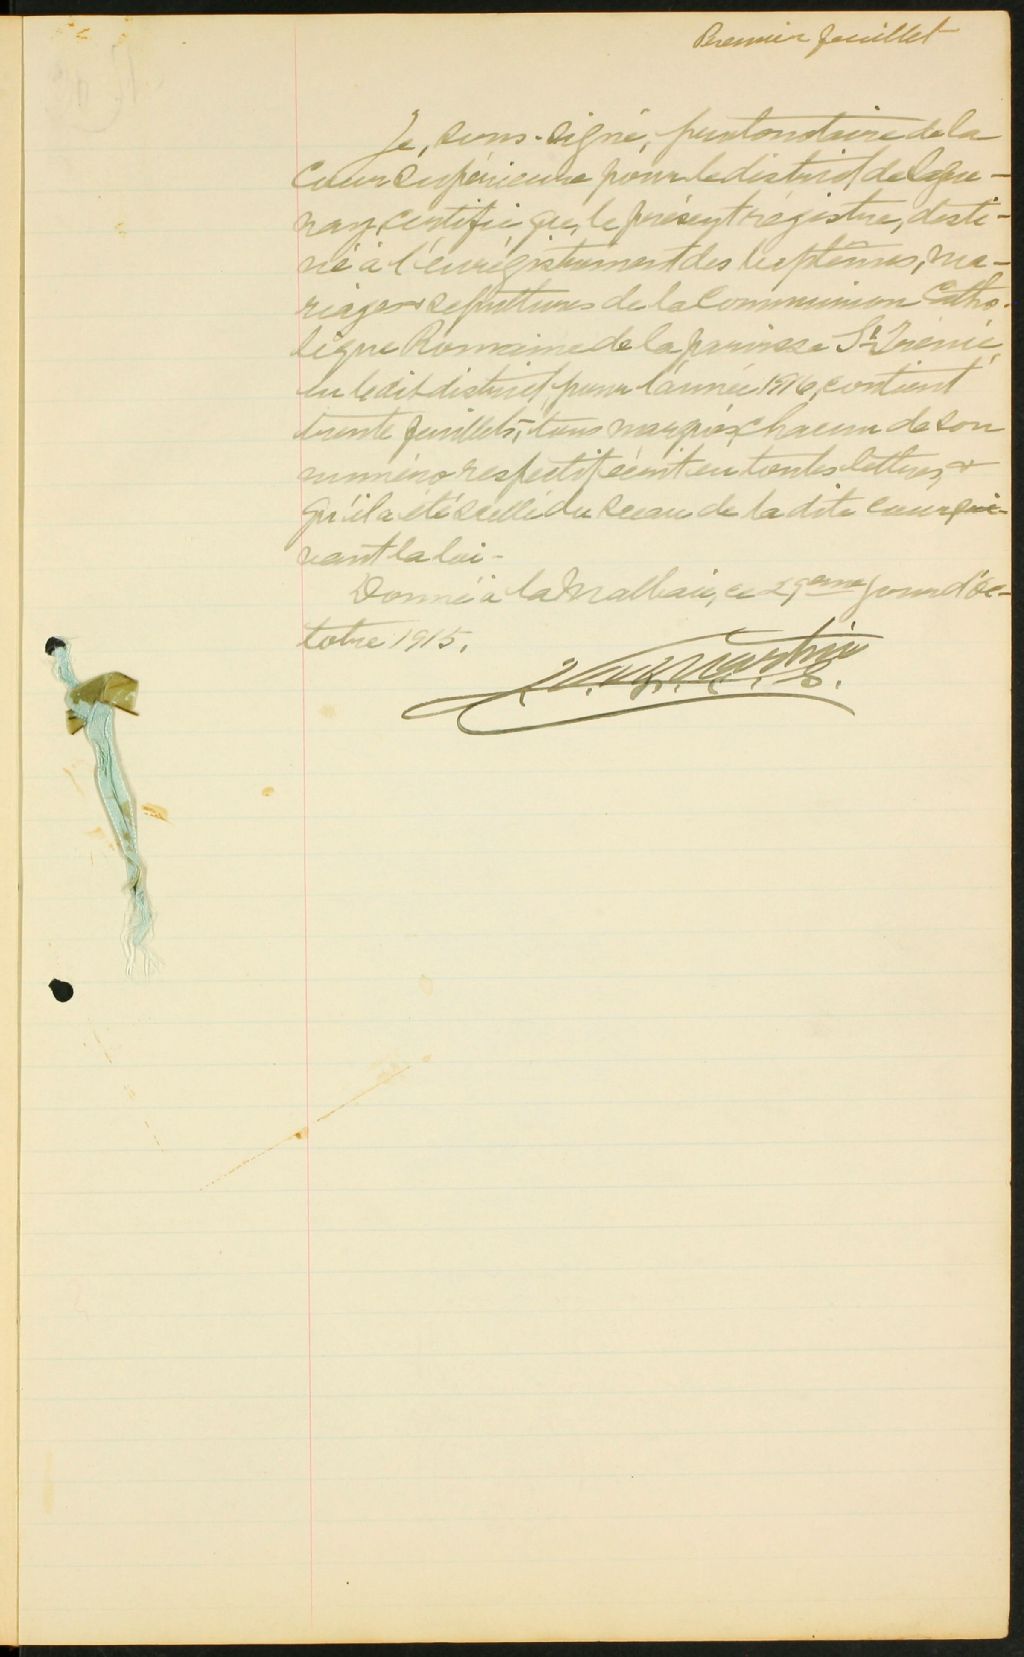 Premier feuillet
Je, sous-signé, protonotaire de la
Cour Supérieure pour le district de Sague-
nay, certifie que, le présent régistre, desti-
né à l'enrégistrement des baptêmes, ma-
riages & sépultures de la Communion Catho-
lique Romaine de la paroisse St Irénée,
en le dit district, pour l'année 1916, contient
trente feuillets, tous marqués, chacun de son
numéro respectif écrit en toutes lettres, &
qu'il a été scellé du sceau de la dite cour sui-
vant la loi-
Donné à la Malbaie, ce 29eme jour d'oc-
tobre 1915.
P. C. S.